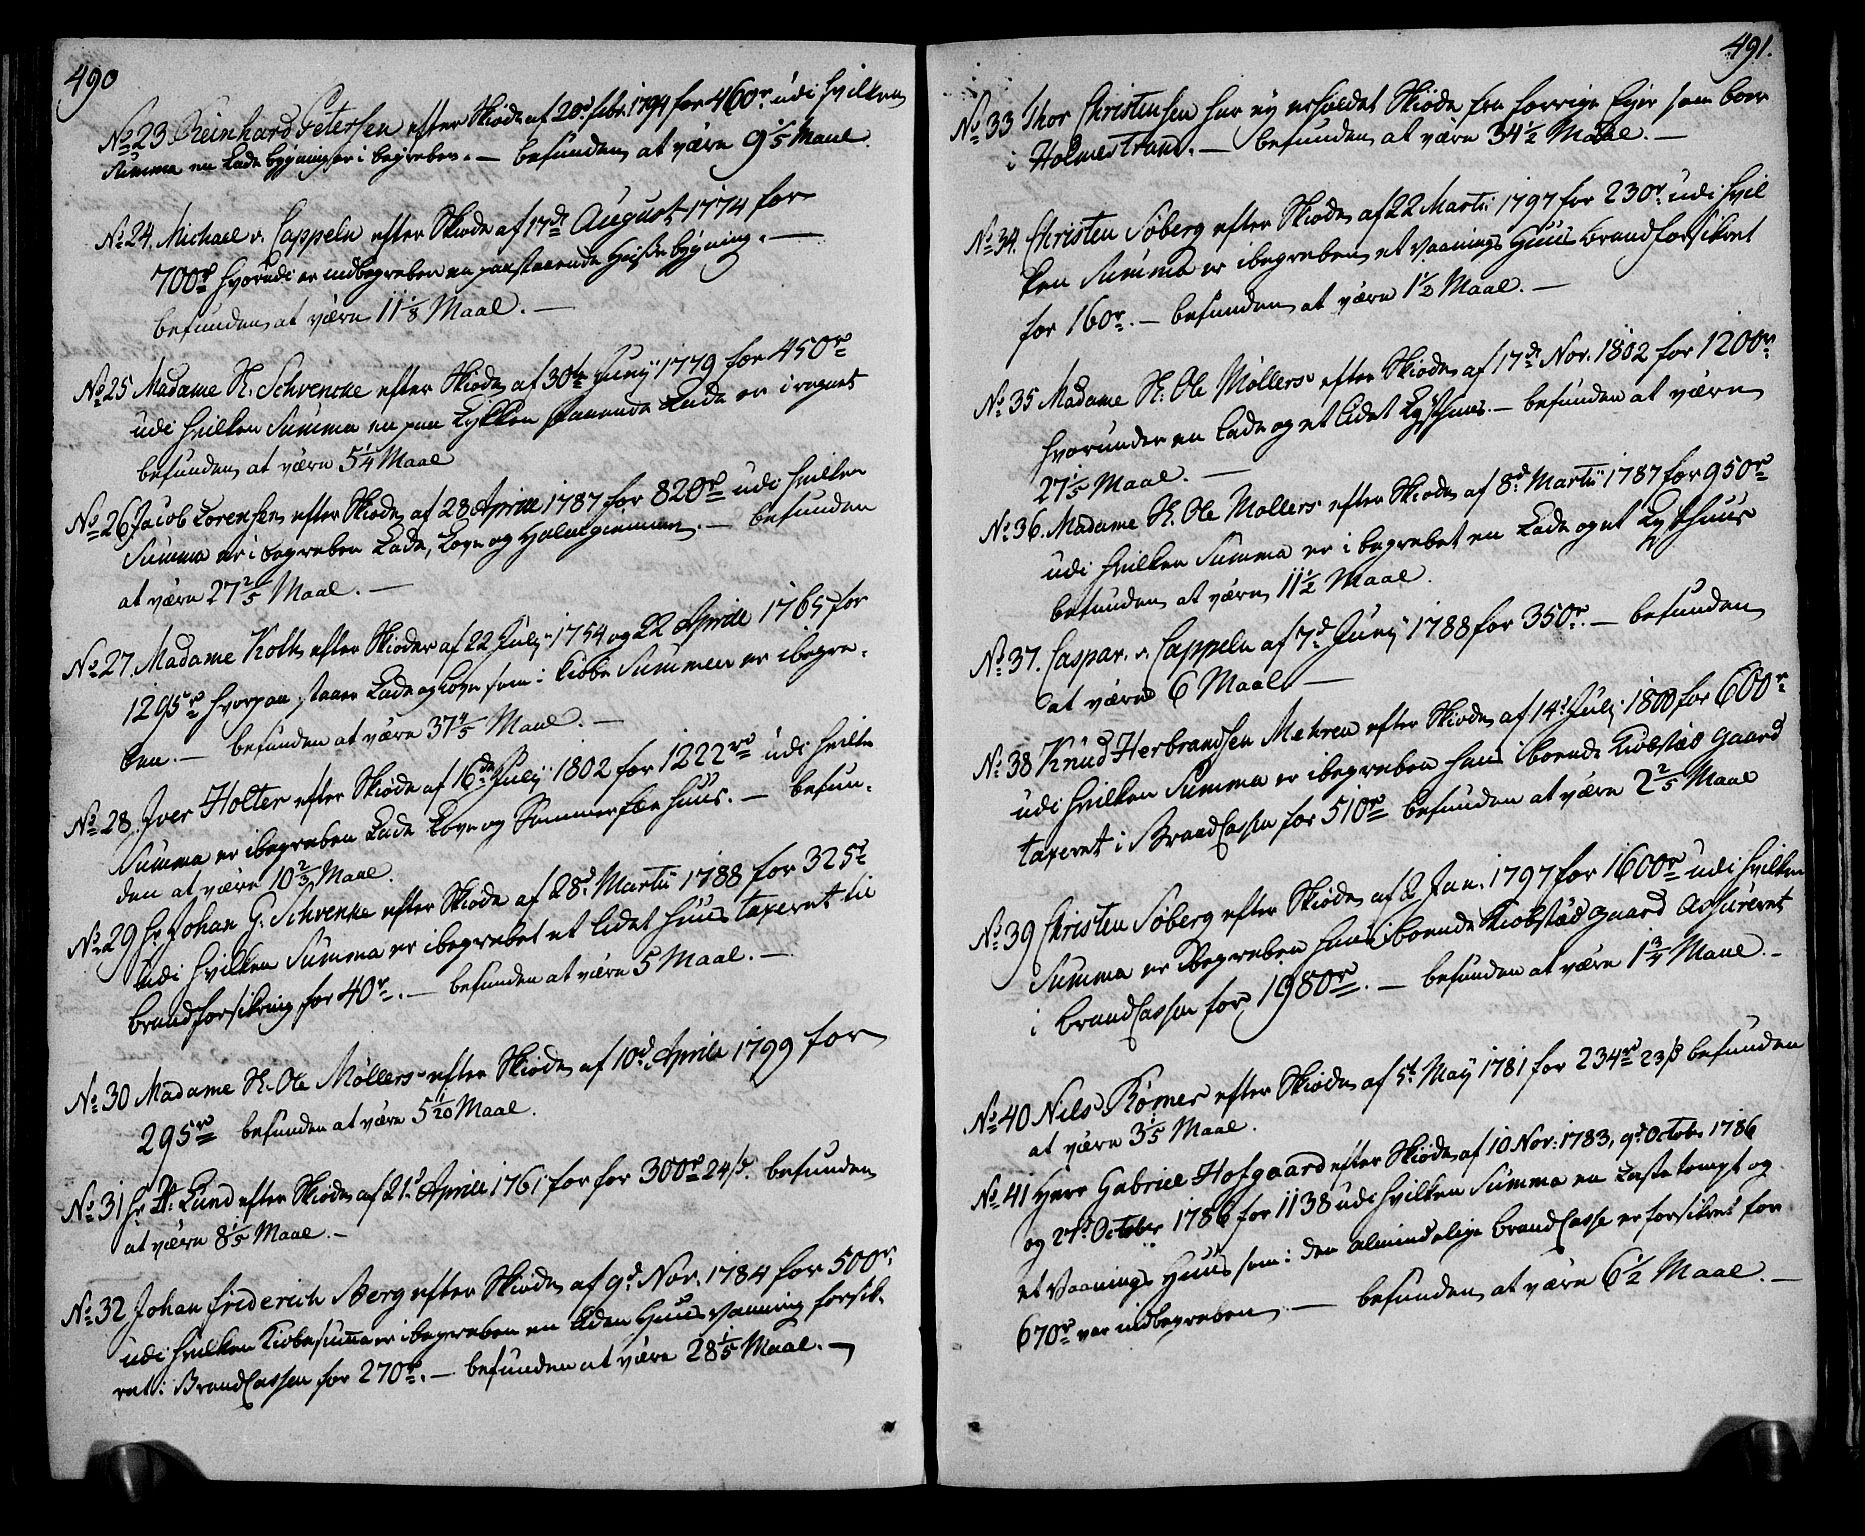 490
No 23 Reinhard Petersen efter Skiøde af 20d Febr. 1794 for 460r udi hvilken
Summa en Lade bygning er i begreben. — befunden at være 9 1/5 Maal.
No 24. Michael v. Cappeln efter Skiøde af 17de August 1774 for
700rd hvorudi er indbegreben en paastaaende Huuse bygning. —
befunden at være 11 1/8 Maal. —
No 25 Madame Sl. Schvencke efter Skiøde af 30te Junj 1779 for 450rd
udi hvilken Summa en paa Lykken staaende Lade er i regnet
befunden at være 5 1/4 Maal
No 26 Jacob Lorensen efter Skiøde af 28 Aprill 1787 for 820rd udi hvilken
Summa er i begreben Lade, Løve og Halmgiemme. — befunden
at være 27 2/5 Maal. —
No 27. Madame Kolt efter Skiøder af 22 Julj 1754 og 22 Aprill 1765 for
1295rd hvorpaa staaer Lade og Løve som i Kiøbe Summen er ibegre-
ben. — befunden at være 37 4/5 Maal. —
No 28. Jver Holter efter Skiøde af 16de Julj 1802 for 1222rd udi hvilke
Summa er ibegreben Lade Løve og Sommerfæe huus. — befun-
den at være 10 2/3 Maal.
No 29 Hr Johan G. Schvenke efter Skiøde af 28d Martii 1788 for 325rd
udi hvilken Summa er ibegrebet et lidet Huus taxeret til
brandforsikring for 40r. — befunden at være 5 Maal. —
No 30 Madame Sl. Ole Møllers efter Skiøde af 10d Aprill 1799 for
295rd befunden at være 5 1/20 Maal.
No 31 Hr At. Lund efter Skiøde af 21d Aprill 1761 for for 300rd 24 s. befunden
at være 8 1/5 Maal. —
No 32 Johan Friderich Berg efter Skiøde af 9d Nov. 1784 for 500r.
udi hvilken Kiøbesum̅a er ibegreben en liden Huus Vaaning forsik-
ret i BrandCassen for 270rd. — befunden at være 28 1/5 Maal. —
491.
No 33 Thor Christensen har ey erholdet Skiøde fra forrige Eyer som boer
i Holmestrand. — befunden at være 34 1/2 Maal. —
No 34. Christen Søberg efter Skiøde af 22 Martii 1797 for 230r. udi hvil
ken Summa er ibegreben et Vaanings Huus brandforsikret
for 160r. — befunden at være 1 1/2 Maal. —
No 35 Madame Sl. Ole Møllers efter Skiøde af 17d Nov. 1802 for 1200r
hvorunder en Lade og et lidet Lysthuus. — befunden at være
27 1/5 Maal. —
No 36. Madame Sl. Ole Møllers efter Skiøde af 8d Martii 1787 for 950rd
udi hvilken Summa er i begrebet en Lade og et Lysthuus
befunden at være 11 1/2 Maal.
No 37. Caspar v. Cappeln af 7d Junj 1788 for 350r. — befunden
at være 6 Maal —
No 38 Knud Herbrandsen Mehren efter Skiøde af 14d Julj 1800 for 600r
udi hvilken Summa er ibegreben hans iboende Kiøbstæd gaard
taxeret i BrandCassen for 510rd befunden at være 2 2/5 Maal
No 39 Christen Søberg efter Skiøde af 2 Jan. 1797 for 1600rd udi hvilken
Summa er ibegreben hans iboende Kiøbstæd gaard Assureret
i BrandCassen for 1980rd. — befunden at være 1 3/4 Maal. —
No 40 Nils Rømer efter Skiøde af 5d Maj 1781 for 234rd 23 s befunden
at være 3 1/5 Maal.
No 41 Herr Gabriel Hofgaard efter Skiøde af 10 Nov. 1783, 9d Octobr 1786
og 27d October 1786 for 1138 udi hvilken Summa en Laste tompt og
et Vaanings Huus som i den almindelige brandCasse er forsikret for
670rd var indbegreben — befunden at være 6 1/2 Maal. —